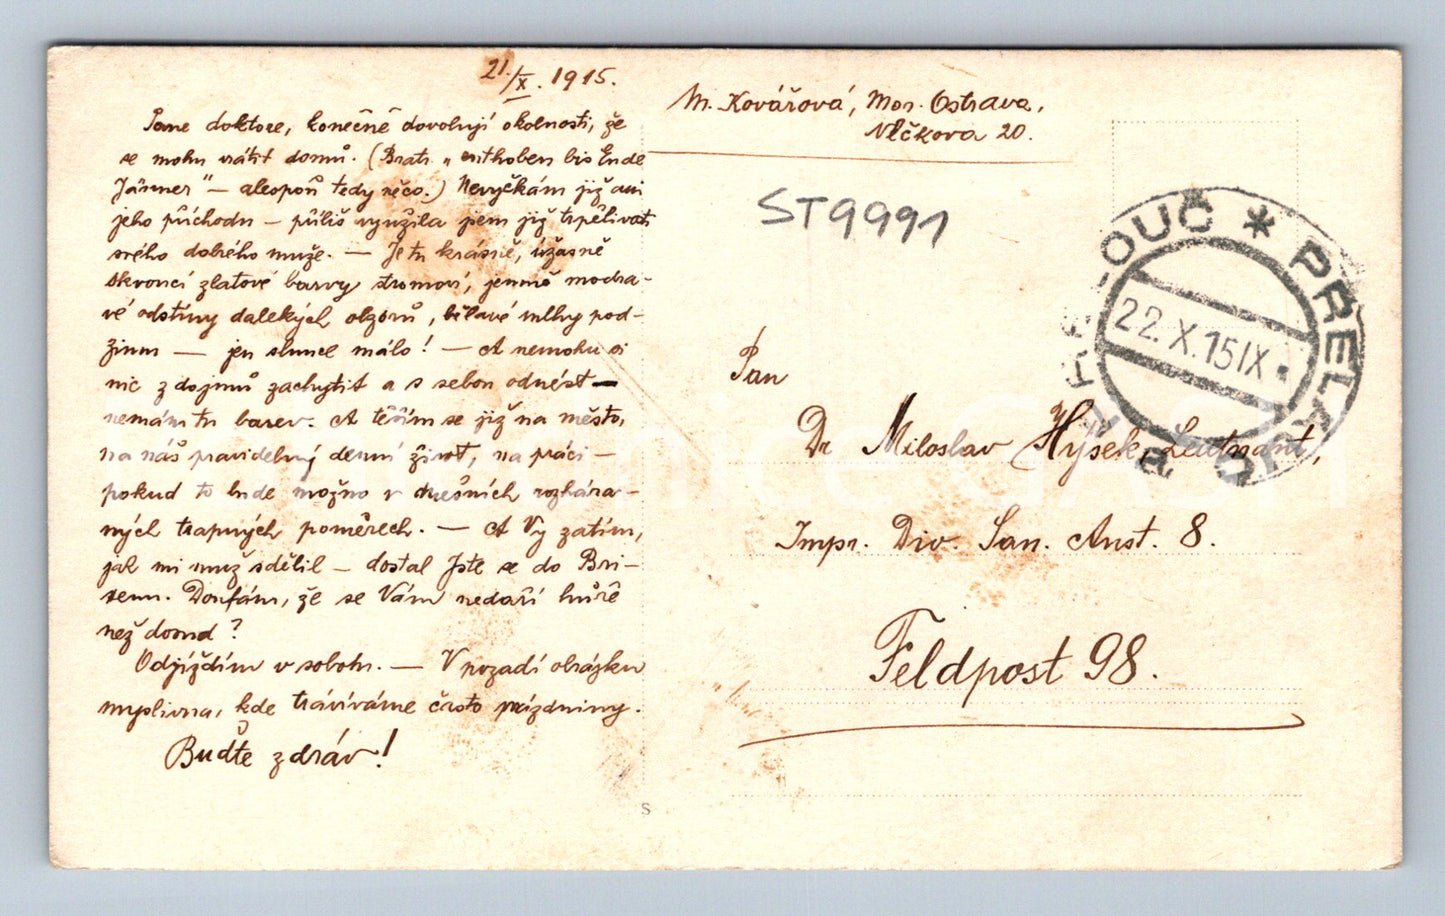 21./X. 1915.
Pane doktore, konečně dovolují okolnosti, že
se mohu vrátit domů. (Bratr „enthoben bis Ende
Jänner" – alespoň tedy něco.) Nevyčkám již ani
jeho příchodu – příliš využila jsem již trpělivosti
svého dobrého muže. – Je tu krásně, úžasně
skvoucí zlatové barvy stromoví, jemné modra-
vé odstíny dalekých obzorů, bělavé mlhy pod-
zimu — jen slunce málo! – A nemohu si
nic z dojmů zachytit a s sebou odnést –
nemám tu barev. A těším se již na město,
na náš pravidelný denní život, na práci –
pokud to bude možno v dnešních rozhára-
ných trapných poměrech. – A Vy zatím,
jak mi muž sdělil – dostal jste se do Bri-
xenu. Doufám, že se Vám nedaří hůře
než doma?
Odjíždím v sobotu. – V pozadí obrázku
myslivna, kde trávíváme často prázdniny.
Buďte zdráv!
M. Kovářová, Mor. Ostrava,
Nlčkova 20.
ST9991
PŘELOUČ * PŘELAUČ
22.X.15 IX
Pan
Dr Miloslav Hýsek, Leutnant,
Impr. Div. San. Anst. 8.
Feldpost 98.
S